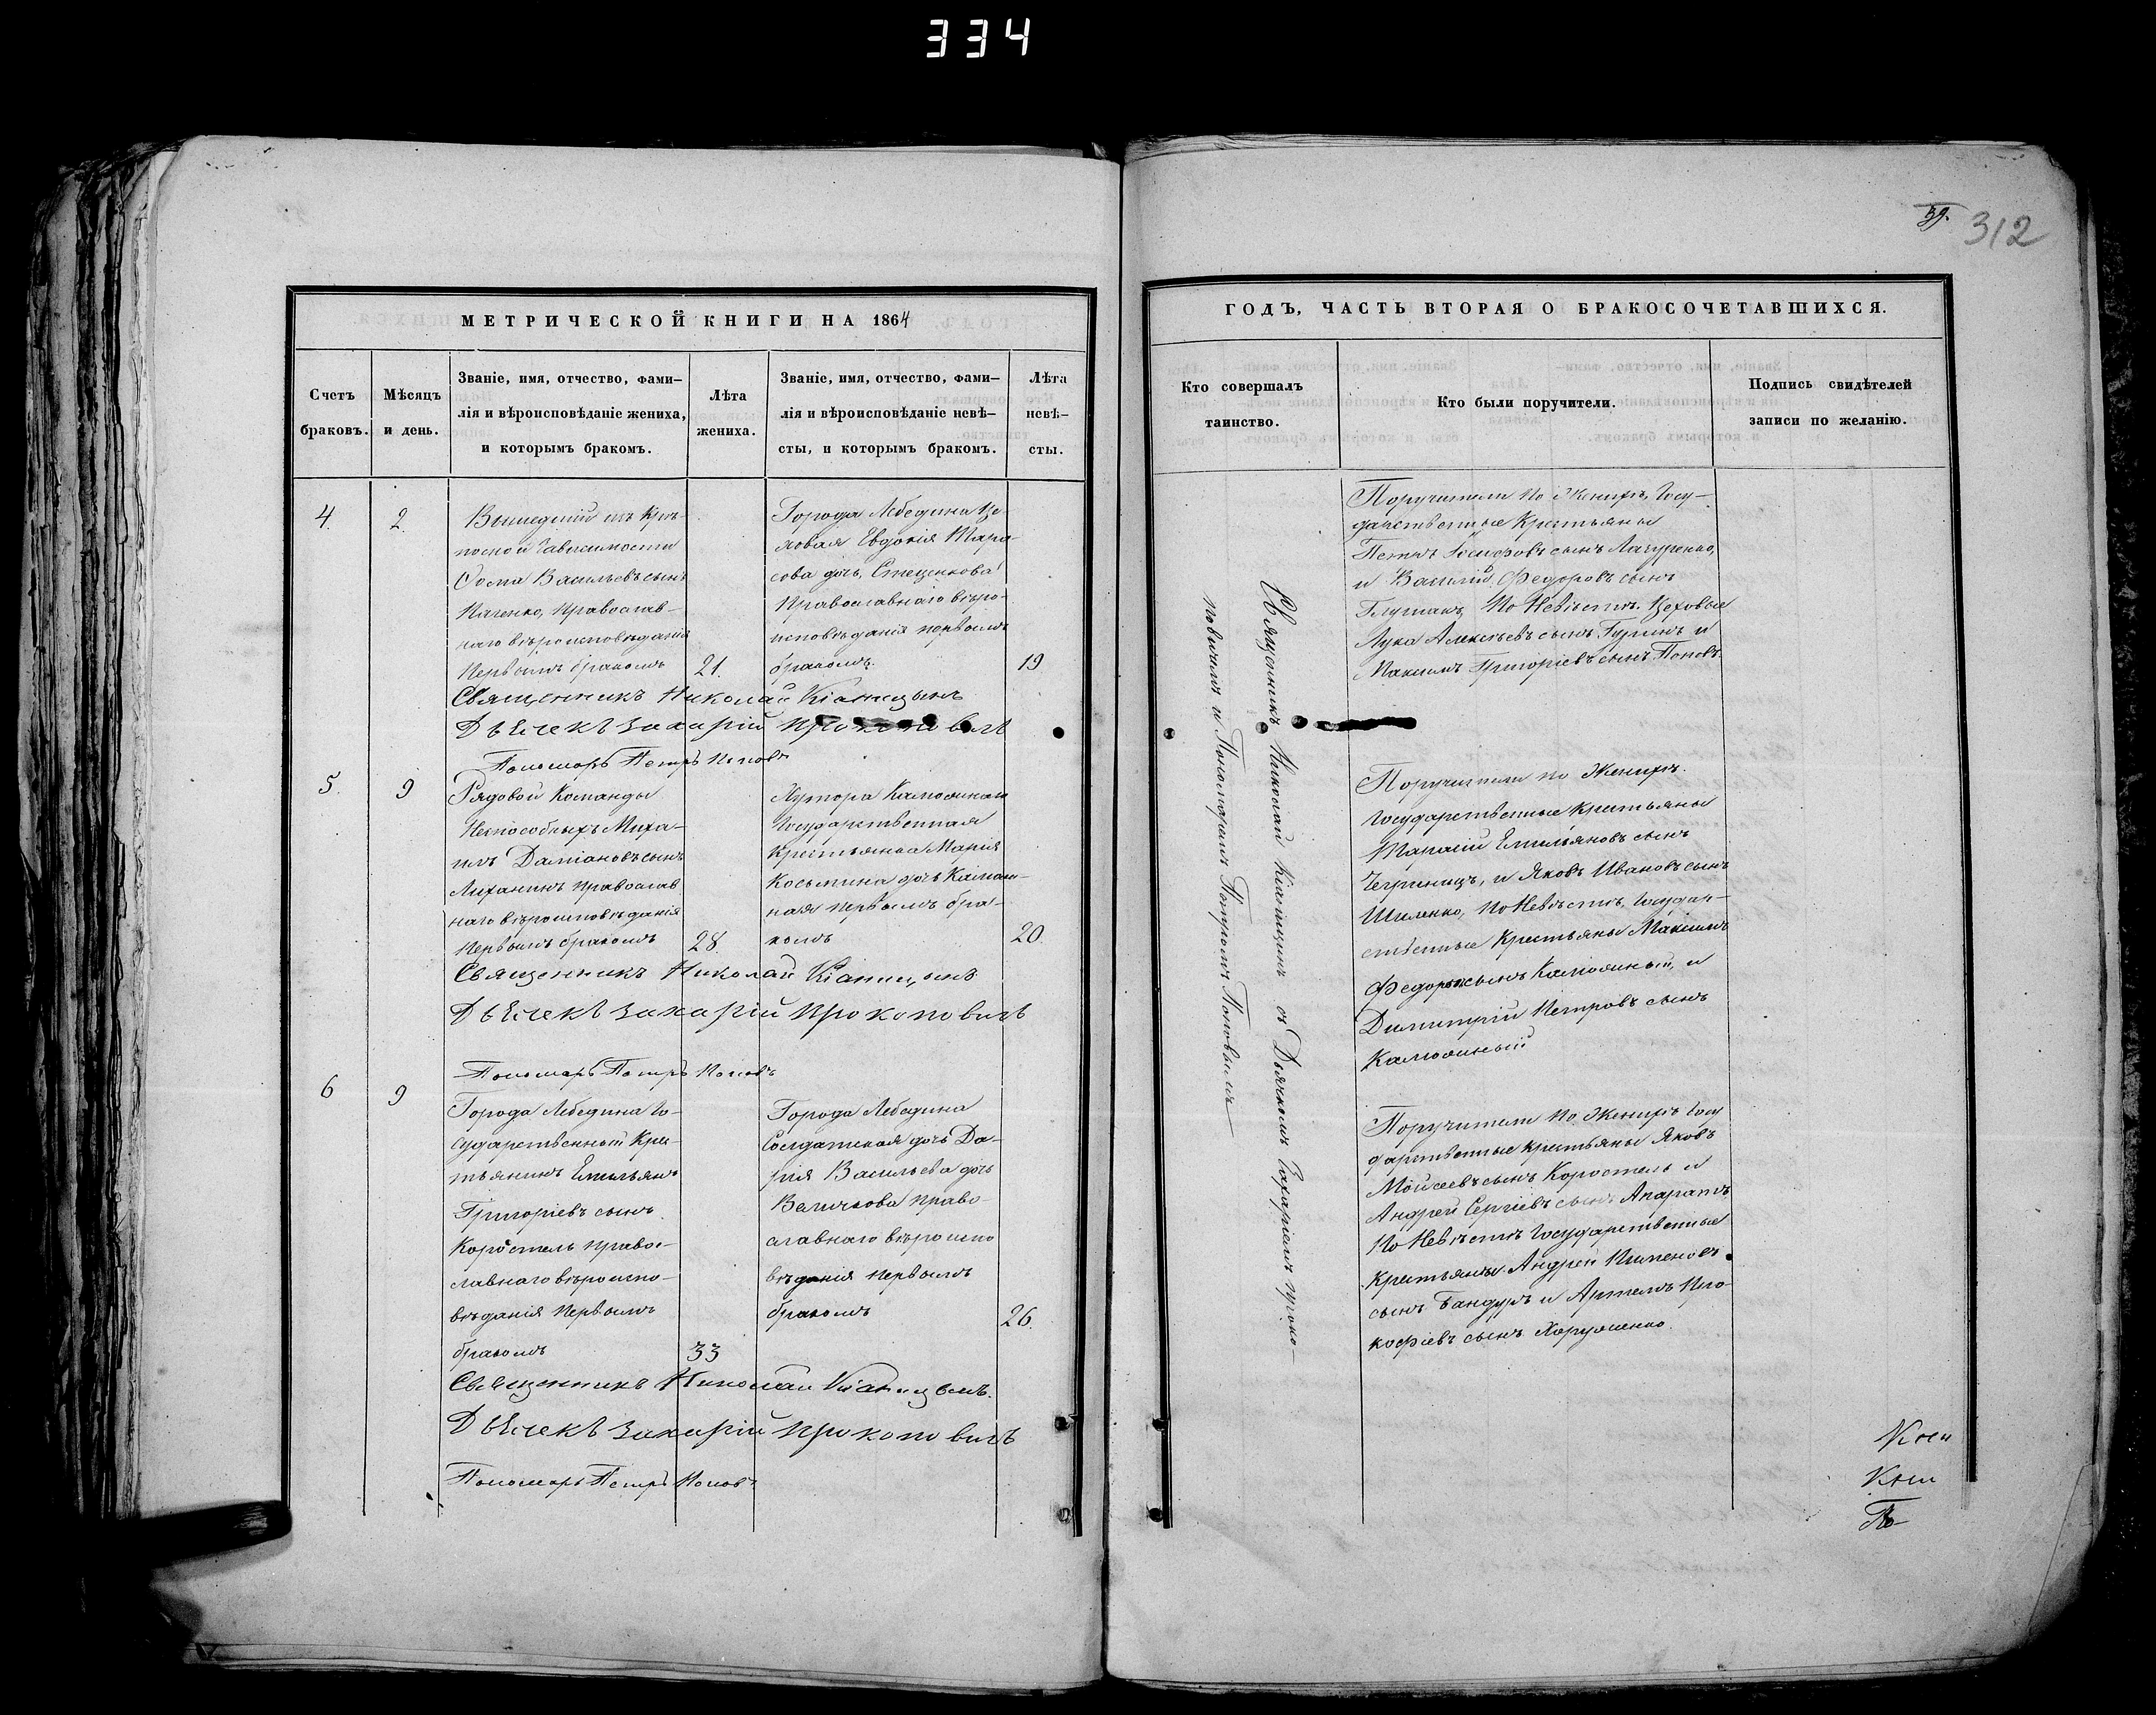 334
39.
312
МЕТРИЧЕСКОЙ КНИГИ НА 1864
Счетъ браковъ.
Мѣсяцъ и день.
Званіе, имя, отчество, фами–
лія и вѣроисповѣданіе жениха,
и которымъ бракомъ.
Лѣта жениха.
Званіе, имя, отчество, фами–
лія и вѣроисповѣданіе невѣ–
сты, и которымъ бракомъ.
Лѣта невѣ–
сты.
4.
2
Вышедшій изъ крѣ-
постной зависимости
Васильевъ сынъ
православ-
наго вѣроисповѣданія
первымъ бракомъ
21.
Города Лебедина це-
ховая Евдокія Тара-
сова дочь, Стеценкова
православнаго вѣро-
исповѣданія первымъ
бракомъ.
19
Священникъ Николай Кіаницынъ
Дьячекъ Захарій
Пономарь Петръ Поповъ
5.
9
Рядовой Команды
Неспособныхъ Миха-
илъ Даміановъ сынъ
православ
наго вѣроисповѣданія
первымъ бракомъ
28
Хутора
Государственная
крестьянка Марія
Косьмина дочь
первымъ бра-
комъ
20.
Священникъ Николай Кіаницынъ
Дьячекъ Захарій Прокоповичъ
Пономарь Петръ Поповъ
6
9
Города Лебедина Го-
сударственный Кре-
стьянинъ Емельянъ
Григоріевъ сынъ
Коростель право-
славнаго вѣроиспо-
вѣданія первымъ
бракомъ
33
Города Лебедина
Солдатская дочь Да-
рія Васильева дочь
Величкова право-
славнаго вѣроиспо
вѣданія первымъ
бракомъ
26.
Священникъ Николай Кіаницынъ.
Дьячекъ Захарій Прокоповичъ
Пономарь Петръ Поповъ
ГОДЪ, ЧАСТЬ ВТОРАЯ О БРАКОСОЧЕТАВШИХСЯ.
Кто совершалъ
таинство.
Кто были поручители.
Подпись свидѣтелей
записи по желанію.
Священникъ Николай Кіаницынъ съ Дьячкомъ Захаріемъ Проко-
повичемъ и Пономаремъ Петромъ Поповымъ
Поручители по Женихѣ, Госу-
дарственные Крестьяне
Петръ Іосифовъ сынъ
и Василій Федоровъ сынъ
по Невѣстѣ. Цеховые
Лука Алексѣевъ сынъ и
Максимъ Григоріевъ сынъ Поповъ.
Поручители по Женихѣ.
Государственные крестьяне
Тарасій Емельяновъ сынъ
и Яковъ Ивановъ сынъ
по Невѣстѣ, Государ-
ственные Крестьяне Максимъ
сынъ и
Димитрій Петровъ сынъ
Поручители по Женихѣ Госу
дарственные крестьяне Яковъ
Мойсеевъ сынъ Коростель и
Андрей Сергіевъ сынъ
по Невѣстѣ Государственные
Крестьяне Андрей Пименовъ
сынъ Бандуръ и Артемъ Про-
кофіевъ сынъ